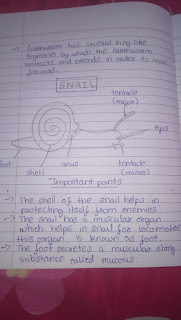 → Earthworm has several ring like
segments by which the earthworm
contracts and extends in order to move
forward.
SNAIL
tentacle
(major)
Eyes
foot
anus
tentacle
shell
(minor)
Important points
→ The shell of the snail helps in
protecting itself from enemies.
→ The snail has a muscular organ
which helps in snail for locomotion
this organ is known as foot.
→ The foot secretes a muscular sling
substance called mucous.